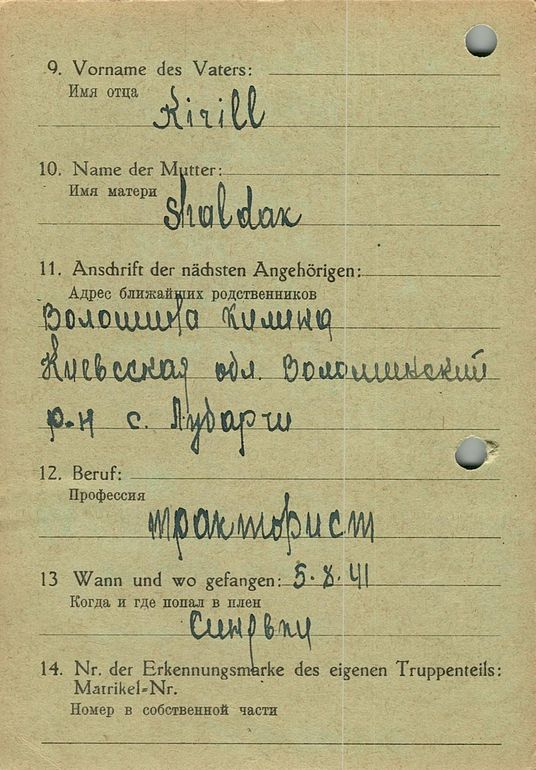 9. Vorname des Vaters:
Имя отца
Kirill
10. Name der Mutter:
Имя матери
Shaldak
11. Anschrift der nächsten Angehörigen:
Адрес ближайших родственников
Волошина
Киевсская обл. Воломинский
р-н с.
12. Beruf:
Профессия
тракторист
13 Wann und wo gefangen: 5.8.41
Когда и где попал в плен
14. Nr. der Erkennungsmarke des eigenen Truppenteils:
Matrikel=Nr.
Номер в собственной части